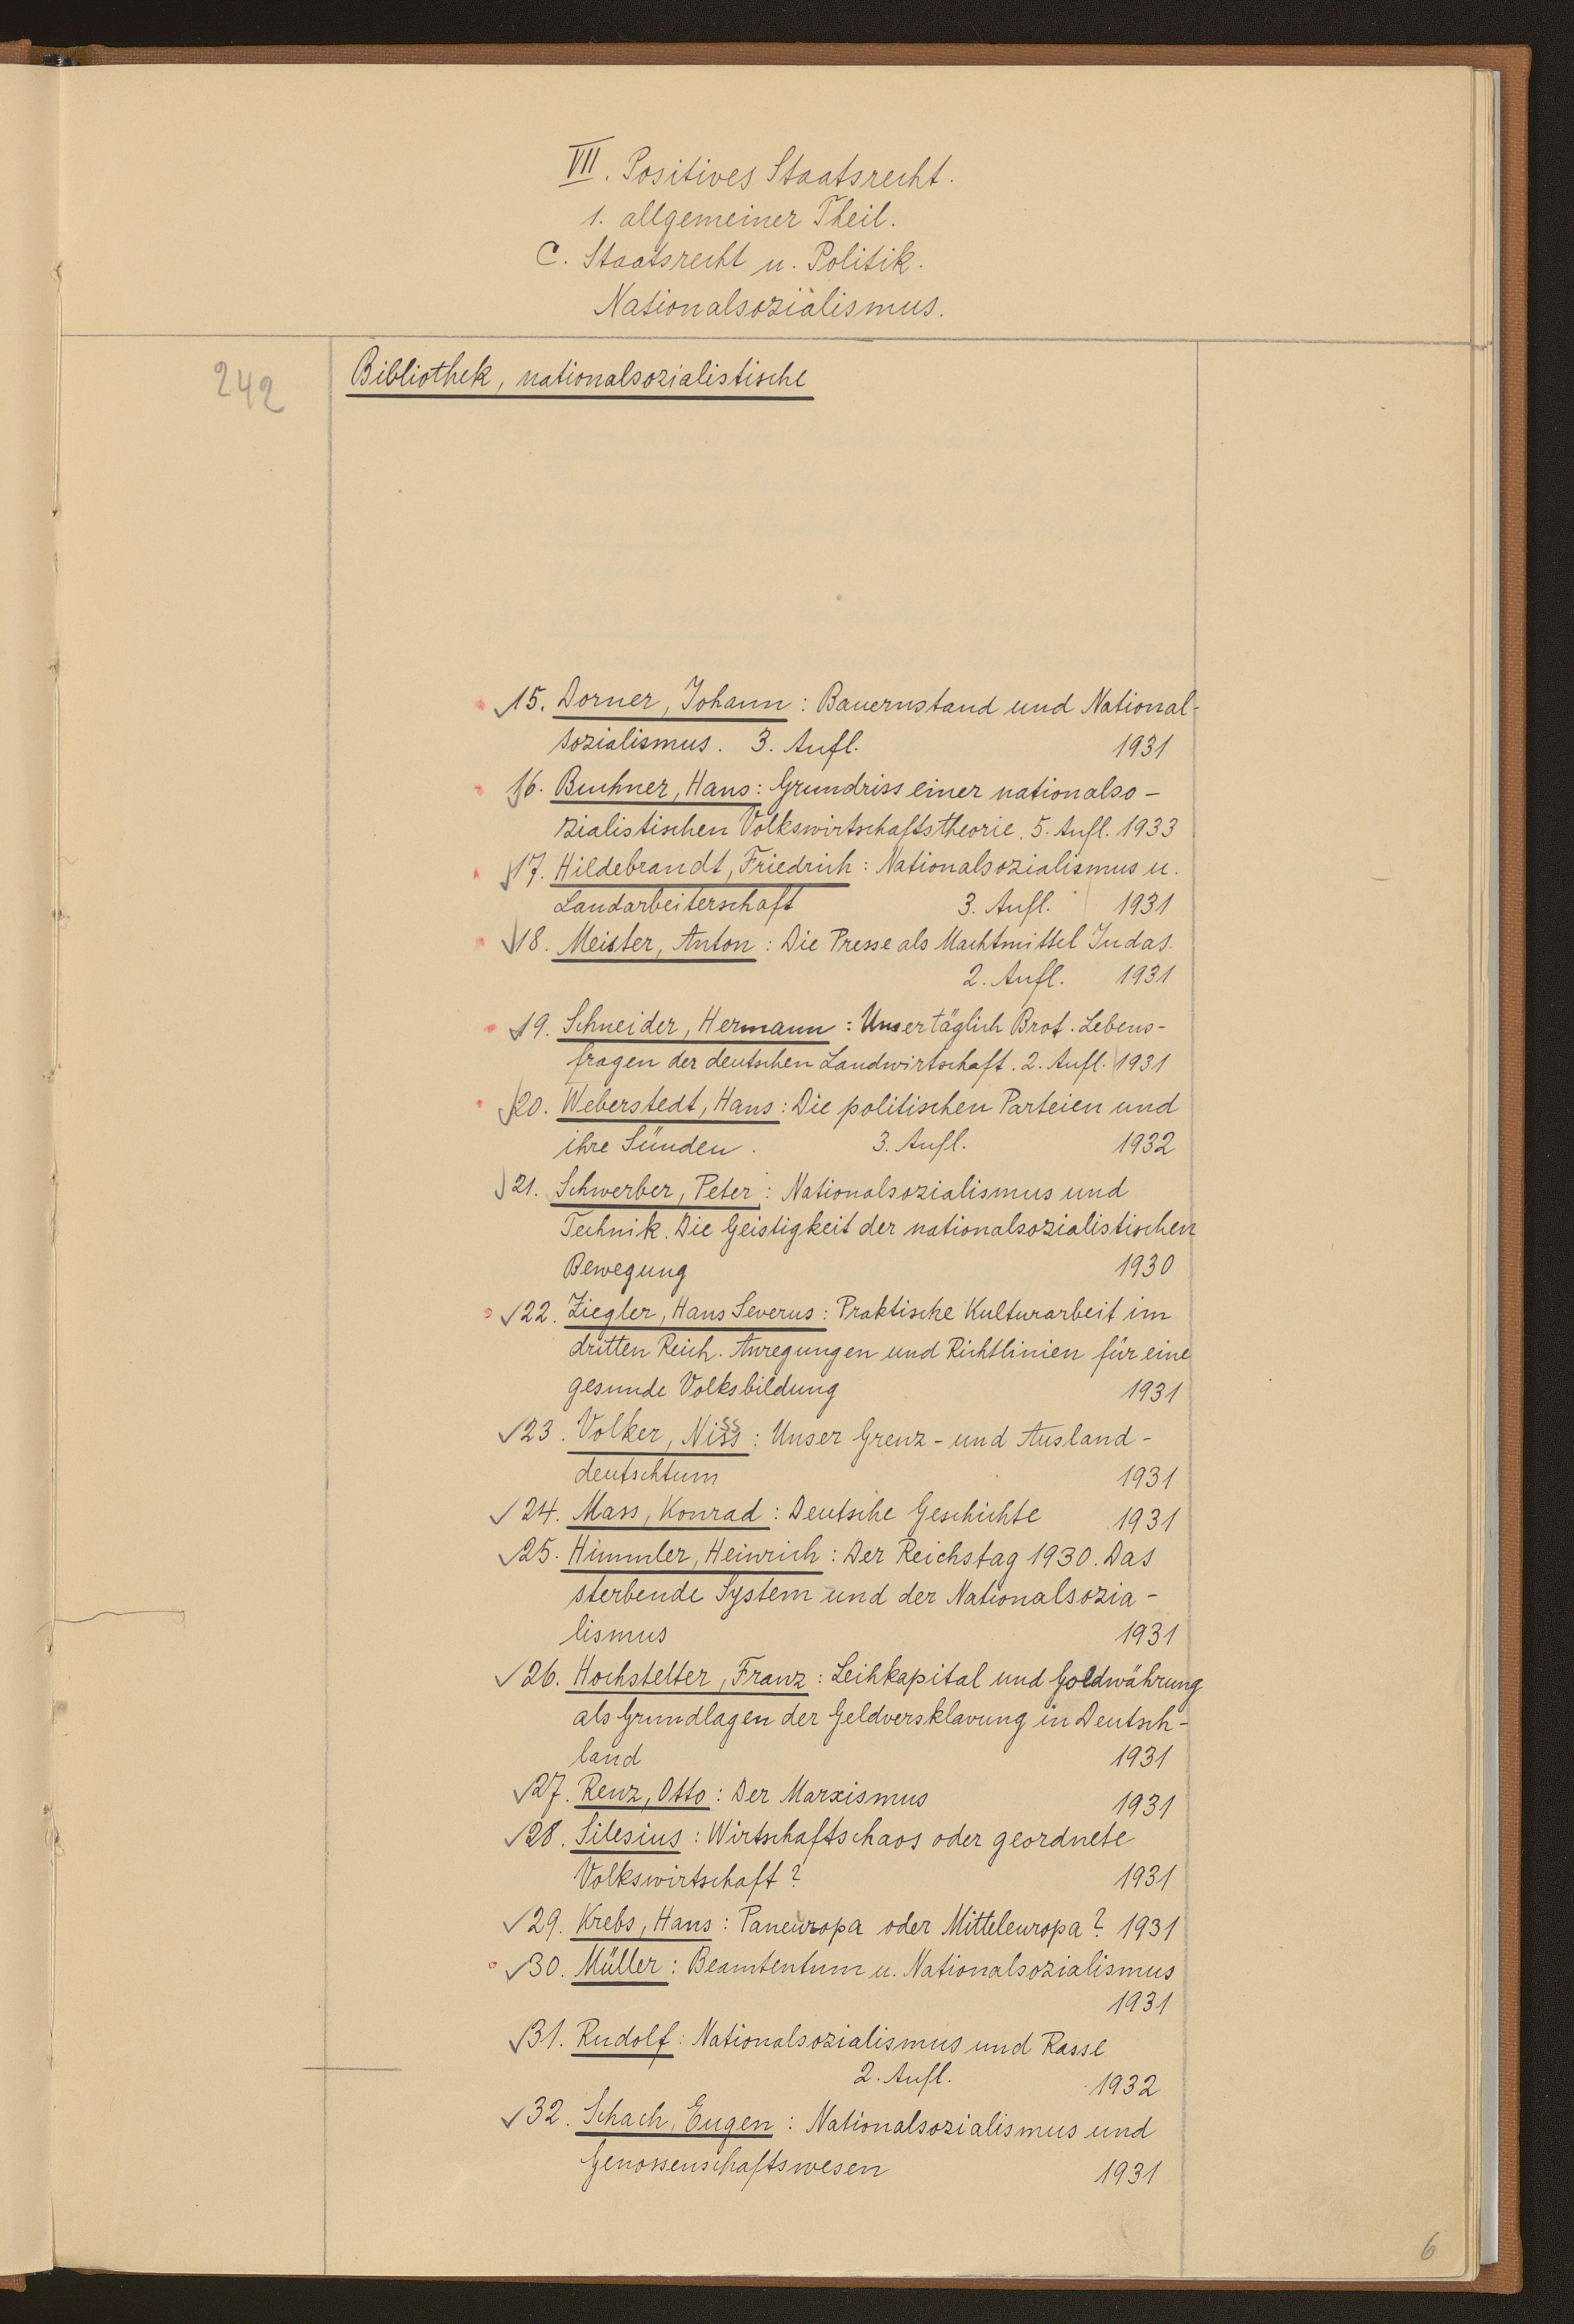 VII. Positives Staatsrecht.
1. allgemeiner Theil.
C. Staatsrecht u. Politik.
Nationalsozialismus.
242
Bibliothek, nationalsozialistische
15. Dorner, Johann: Bauernstand und National-
sozialismus. 3. Aufl. 1931
16. Buchner, Hans: Grundriss einer nationalso-
zialistischen Volkswirtschaftstheorie. 5. Aufl. 1933
17. Hildebrandt, Friedrich: Nationalsozialismus u.
Landarbeiterschaft 3. Aufl. 1931
18. Meister, Anton: Die Presse als Machtmittel Judas.
2. Aufl. 1931
19. Schneider, Hermann: Unser täglich Brot. Lebens-
fragen der deutschen Landwirtschaft. 2. Aufl. 1931
20. Weberstedt, Hans: Die politischen Parteien und
ihre Sünden. 3. Aufl. 1932
21. Schwerber, Peter: Nationalsozialismus und
Technik. Die Geistigkeit der nationalsozialistischen
Bewegung 1930
22. Ziegler, Hans Severus: Praktische Kulturarbeit im
dritten Reich. Anregungen und Richtlinien für eine
gesunde Volksbildung 1931
23. Volker, Niss: Unser Grenz- und Ausland-
deutschtum 1931
24. Mass, Konrad: Deutsche Geschichte 1931
25. Himmler, Heinrich: Der Reichstag 1930. Das
sterbende System und der Nationalsozia-
lismus 1931
26. Hochstetter, Franz: Leihkapital und Goldwährung
als Grundlagen der Geldversklavung in Deutsch-
land 1931
27. Renz, Otto: Der Marxismus 1931
28. Silesius: Wirtschaftschaos oder geordnete
Volkswirtschaft? 1931
29. Krebs, Hans: Paneuropa oder Mitteleuropa? 1931
30. Müller: Beamtentum u. Nationalsozialismus
1931
31. Rudolf: Nationalsozialismus und Rasse
2. Aufl. 1932
32. Schach, Eugen: Nationalsozialismus und
Genossenschaftswesen 1931
6